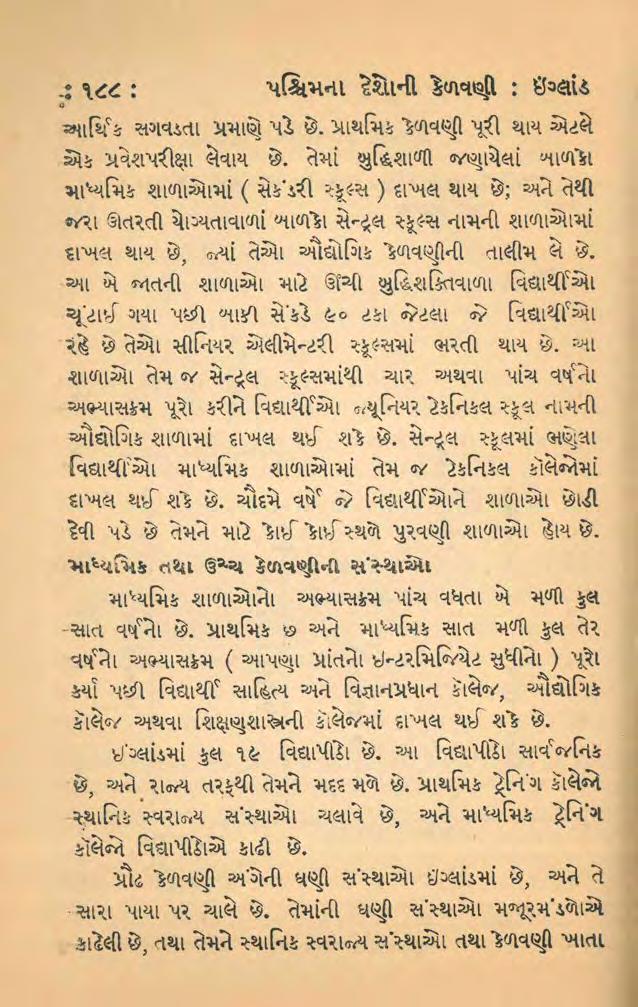 : ૧૮૮ : પશ્ચિમના દેશોની કેળવણી : ઇંગ્લાંડ
આર્થિક સગવડતા પ્રમાણે પડે છે. પ્રાથમિક કેળવણી પૂરી થાય એટલે
એક પ્રવેશપરીક્ષા લેવાય છે. તેમાં બુદ્ધિશાળી જણાયેલાં બાળકો
માધ્યમિક શાળાઓમાં ( સેકંડરી સ્કૂલ્સ ) દાખલ થાય છે; અને તેથી
જરા ઊતરતી યોગ્યતાવાળાં બાળકો સેન્ટ્રલ સ્કૂલ્સ નામની શાળાઓમાં
દાખલ થાય છે, જ્યાં તેઓ ઔદ્યોગિક કેળવણીની તાલીમ લે છે.
આ બે જાતની શાળાઓ માટે ઊંચી બુદ્ધિશક્તિવાળા વિદ્યાર્થીઓ
ચૂંટાઈ ગયા પછી બાકી સેંકડે ૯૦ ટકા જેટલા જે વિદ્યાર્થીઓ
રહે છે તેઓ સીનિયર એલીમેન્ટરી સ્કૂલ્સમાં ભરતી થાય છે. આ
શાળાઓ તેમ જ સેન્ટ્રલ સ્કૂલ્સમાંથી ચાર અથવા પાંચ વર્ષનો
અભ્યાસક્રમ પૂરો કરીને વિદ્યાર્થીઓ જ્યૂનિયર ટેકનિકલ સ્કૂલ નામની
ઔદ્યોગિક શાળામાં દાખલ થઈ શકે છે. સેન્ટ્રલ સ્કૂલમાં ભણેલા
વિદ્યાર્થીઓ માધ્યમિક શાળાઓમાં તેમ જ ટેકનિકલ કૉલેજોમાં
દાખલ થઈ શકે છે. ચૌદમે વર્ષે જે વિદ્યાર્થીઓને શાળાઓ છોડી
દેવી પડે છે તેમને માટે કોઈ કોઈ સ્થળે પુરવણી શાળાઓ હોય છે.
માધ્યમિક તથા ઉચ્ચ કેળવણીની સંસ્થાઓ
માધ્યમિક શાળાઓનો અભ્યાસક્રમ પાંચ વધતા બે મળી કુલ
સાત વર્ષનો છે. પ્રાથમિક ૭ અને માધ્યમિક સાત મળી કુલ તેર
વર્ષનો અભ્યાસક્રમ ( આપણા પ્રાંતનો ઇન્ટરમિજિયેટ સુધીનો ) પૂરો
કર્યા પછી વિદ્યાર્થી સાહિત્ય અને વિજ્ઞાનપ્રધાન કૉલેજ, ઔદ્યોગિક
કૉલેજ અથવા શિક્ષણશાસ્ત્રની કૉલેજમાં દાખલ થઈ શકે છે.
ઇંગ્લાંડમાં કુલ ૧૯ વિદ્યાપીઠો છે. આ વિદ્યાપીઠો સાર્વજનિક
છે, અને રાજ્ય તરફથી તેમને મદદ મળે છે. પ્રાથમિક ટ્રેનિંગ કૉલેજો
સ્થાનિક સ્વરાજ્ય સંસ્થાઓ ચલાવે છે, અને માધ્યમિક ટ્રેનિંગ
કૉલેજો વિદ્યાપીઠોએ કાઢી છે.
પ્રૌઢ કેળવણી અંગેની ઘણી સંસ્થાઓ ઇંગ્લાંડમાં છે, અને તે
સારા પાયા પર ચાલે છે. તેમાંની ઘણી સંસ્થાઓ મજૂરમંડળોએ
કાઢેલી છે, તથા તેમને સ્થાનિક સ્વરાજ્ય સંસ્થાઓ તથા કેળવણી ખાતા